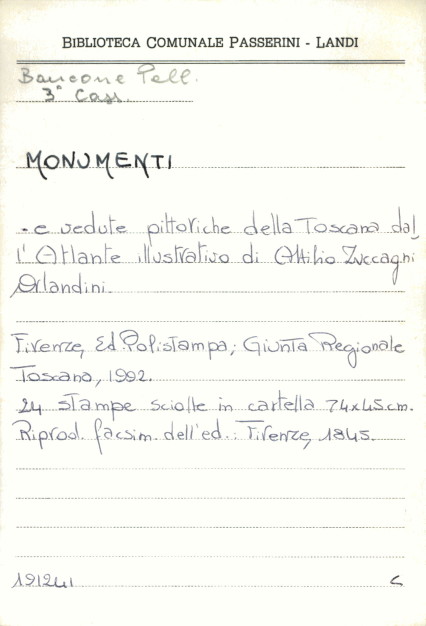 BIBLIOTECA COMUNALE PASSERINI - LANDI
Bancone Pell.
3° Cass.
MONUMENTI
- e vedute pittoriche della Toscana dal
l'Atlante illustrativo di Attilio Zuccagni
Orlandini.
Firenze, Ed. Polistampa; Giunta Regionale
Toscana, 1992.
24 stampe sciolte in cartella 74x45 cm.
Riprod. facsim. dell'ed.: Firenze, 1845.
191241 C